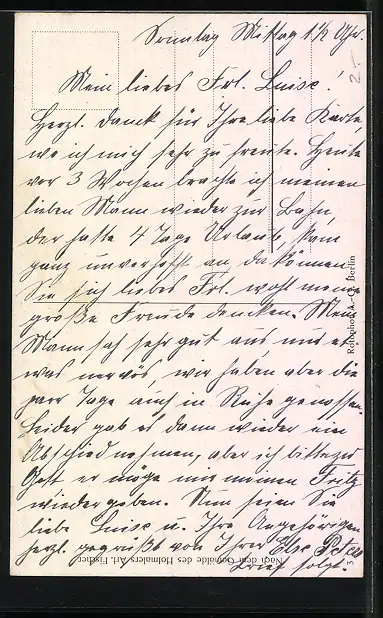 Sonntag Mittag 1 1/2 Uhr.
Mein liebes Frl. Luise!
Herzl. Dank für Ihre liebe Karte,
wo ich mich sehr zu freute. Heute
vor 3 Wochen brachte ich meinen
lieben Mann wieder zur Bahn,
der hatte 4 Tage Urlaub, kam
ganz unverhofft an, da können
Sie sich liebes Frl. wohl meine
große Freude denken. Mein
Mann sah sehr gut aus nur et
was nervös, wir haben aber die
paar Tage auch in Ruhe genossen.
Leider gab es dann wieder ein
Abschiednehmen, aber ich bitte zu
Gott er möge mir meinen Fritz
wiedergeben. Nun seien Sie
liebe Luise u. Ihre Angehörigen
herzl. gegrüßt von Ihrer Else
Brief folgt.
Rotophot A.-G. Berlin
Nach dem Gemälde des Hofmalers Art. Fischer
2-